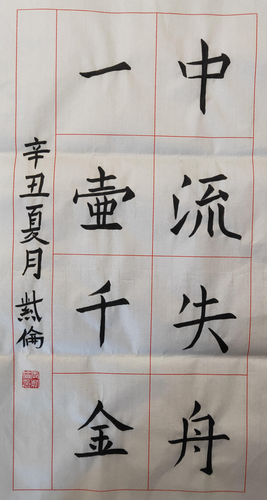 中流失舟
一壶千金
辛丑夏月 燕倫